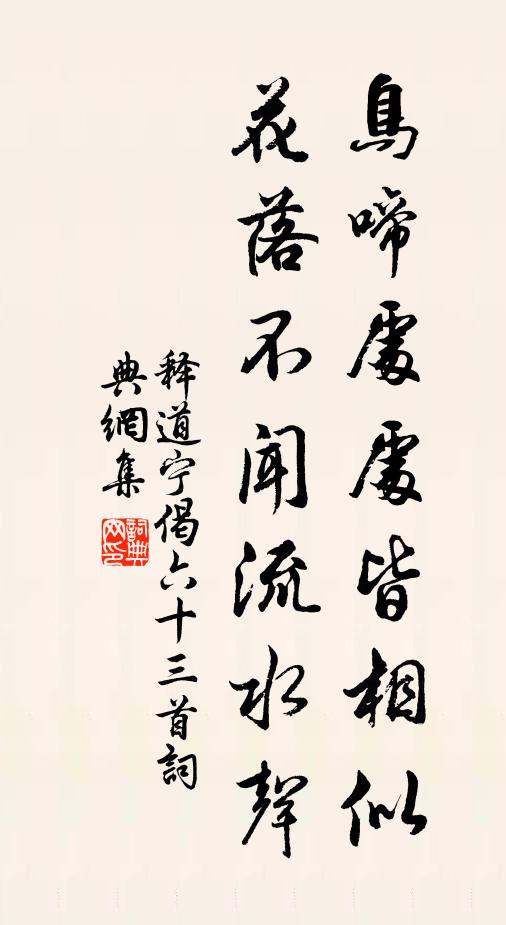 鳥啼處處皆相似
花落不聞流水聲
释道宁偈六十三首詞
典網集
詞典网印